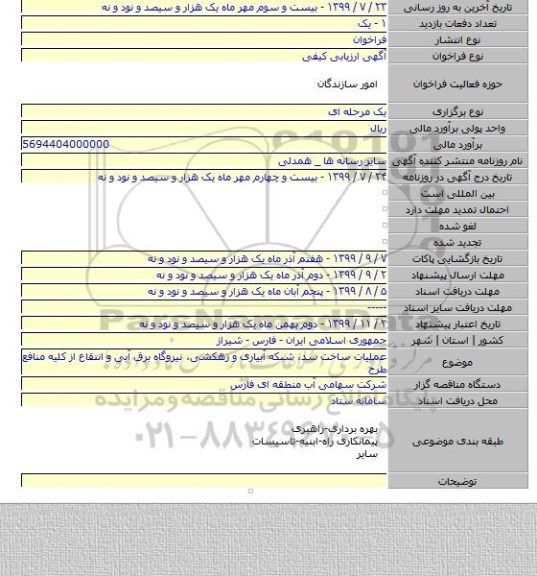 تاریخ آخرین به روز رسانی ۱۳۹۹ / ۷ / ۲۳ - بیست و سوم مهر ماه یک هزار و سیصد و نود و نه
تعداد دفعات بازدید ۱ - یک
نوع انتشار فراخوان
نوع فراخوان آگهی ارزیابی کیفی
حوزه فعالیت فراخوان امور سازندگان
نوع برگزاری یک مرحله ای
واحد پولی برآورد مالی ریال
برآورد مالی 5694404000000
نام روزنامه منتشر کننده آگهی سایر رسانه ها _ همدلی
تاریخ درج آگهی در روزنامه ۱۳۹۹ / ۷ / ۲۴ - بیست و چهارم مهر ماه یک هزار و سیصد و نود و نه
بین المللی است
احتمال تمدید مهلت دارد
لغو شده
تجدید شده
تاریخ بازگشایی پاکات ۱۳۹۹ / ۹ / ۷ - هفتم آذر ماه یک هزار و سیصد و نود و نه
مهلت ارسال پیشنهاد ۱۳۹۹ / ۹ / ۲ - دوم آذر ماه یک هزار و سیصد و نود و نه
مهلت دریافت اسناد ۱۳۹۹ / ۸ / ۵ - پنجم آبان ماه یک هزار و سیصد و نود و نه
مهلت دریافت سایر اسناد -----
تاریخ اعتبار پیشنهاد ۱۳۹۹ / ۱۱ / ۲ - دوم بهمن ماه یک هزار و سیصد و نود و نه
کشور | استان | شهر جمهوری اسلامی ایران - فارس - شیراز
موضوع عملیات ساخت سد، شبکه آبیاری و زهکشی، نیروگاه برق آبی و انتفاع از کلیه منافع
طرح
دستگاه مناقصه گزار شرکت سهامی آب منطقه ای فارس
محل دریافت اسناد سامانه ستاد
طبقه بندی موضوعی بهره برداری-راهبری
پیمانکاری راه-ابنیه-تاسیسات
سایر
توضیحات
ParsNamadData
پایگاه اطلاع رسانی مناقصه و مزایده